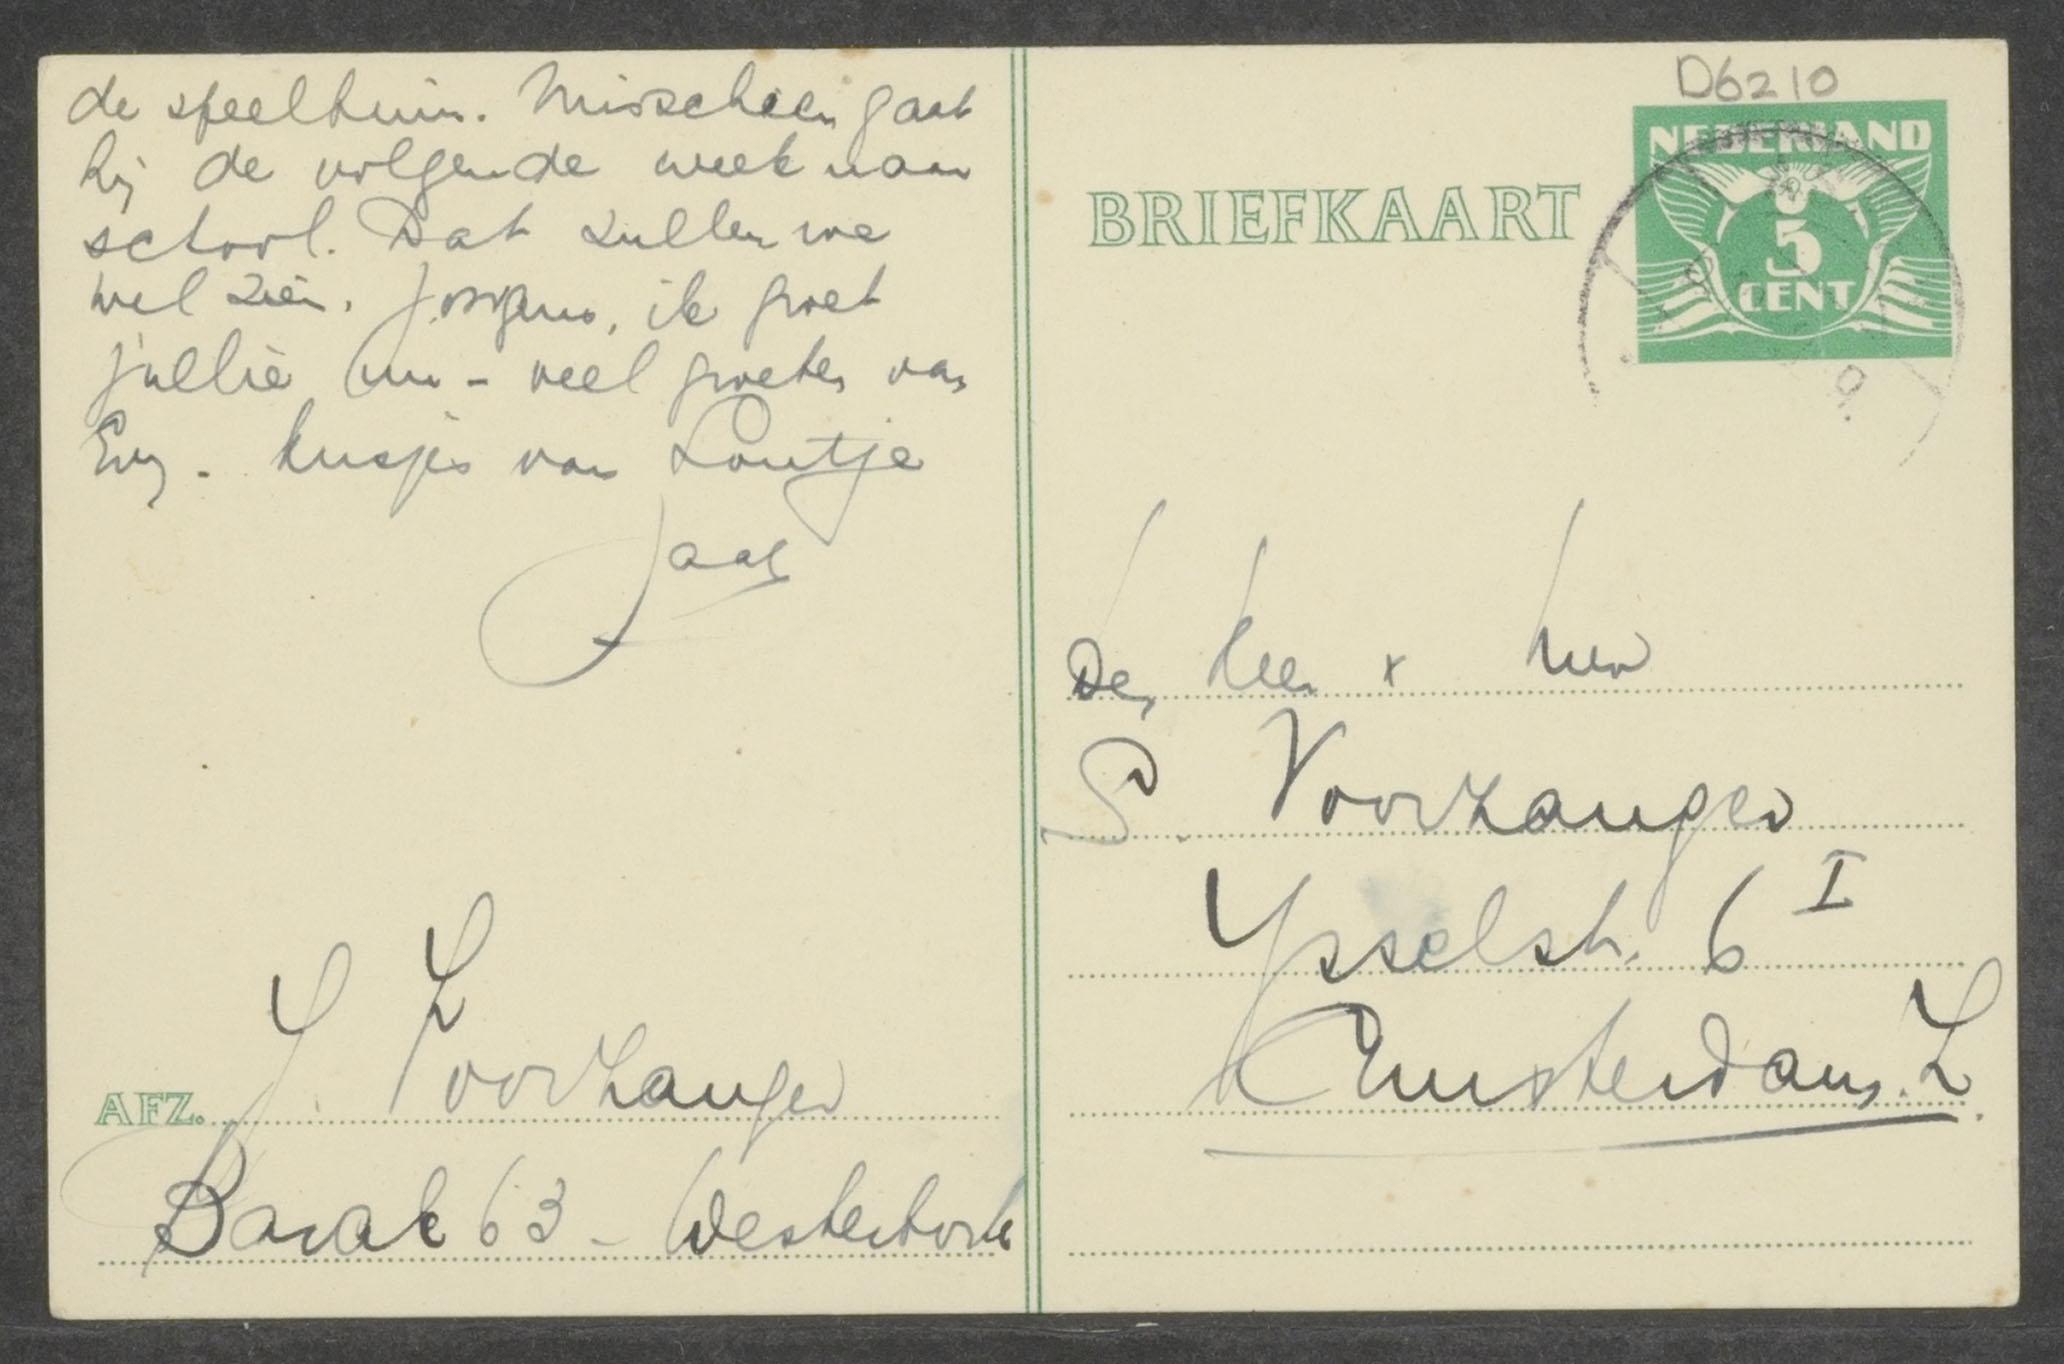 de speeltuin. Misschien gaat
hij de volgende week naar
school. Dat zullen we
wel zien. Jongens, ik groet
jullie nu - veel groeten van
Evy. kusjes van Loutje
Jaap
AFZ. J Voorzanger
Barak 63 - Westerbork
D6210
NEDERLAND
5
CENT
BRIEFKAART
De Heer + Mevr
S. Voorzanger
Ysselstr. 6 I
Amsterdam. Z.